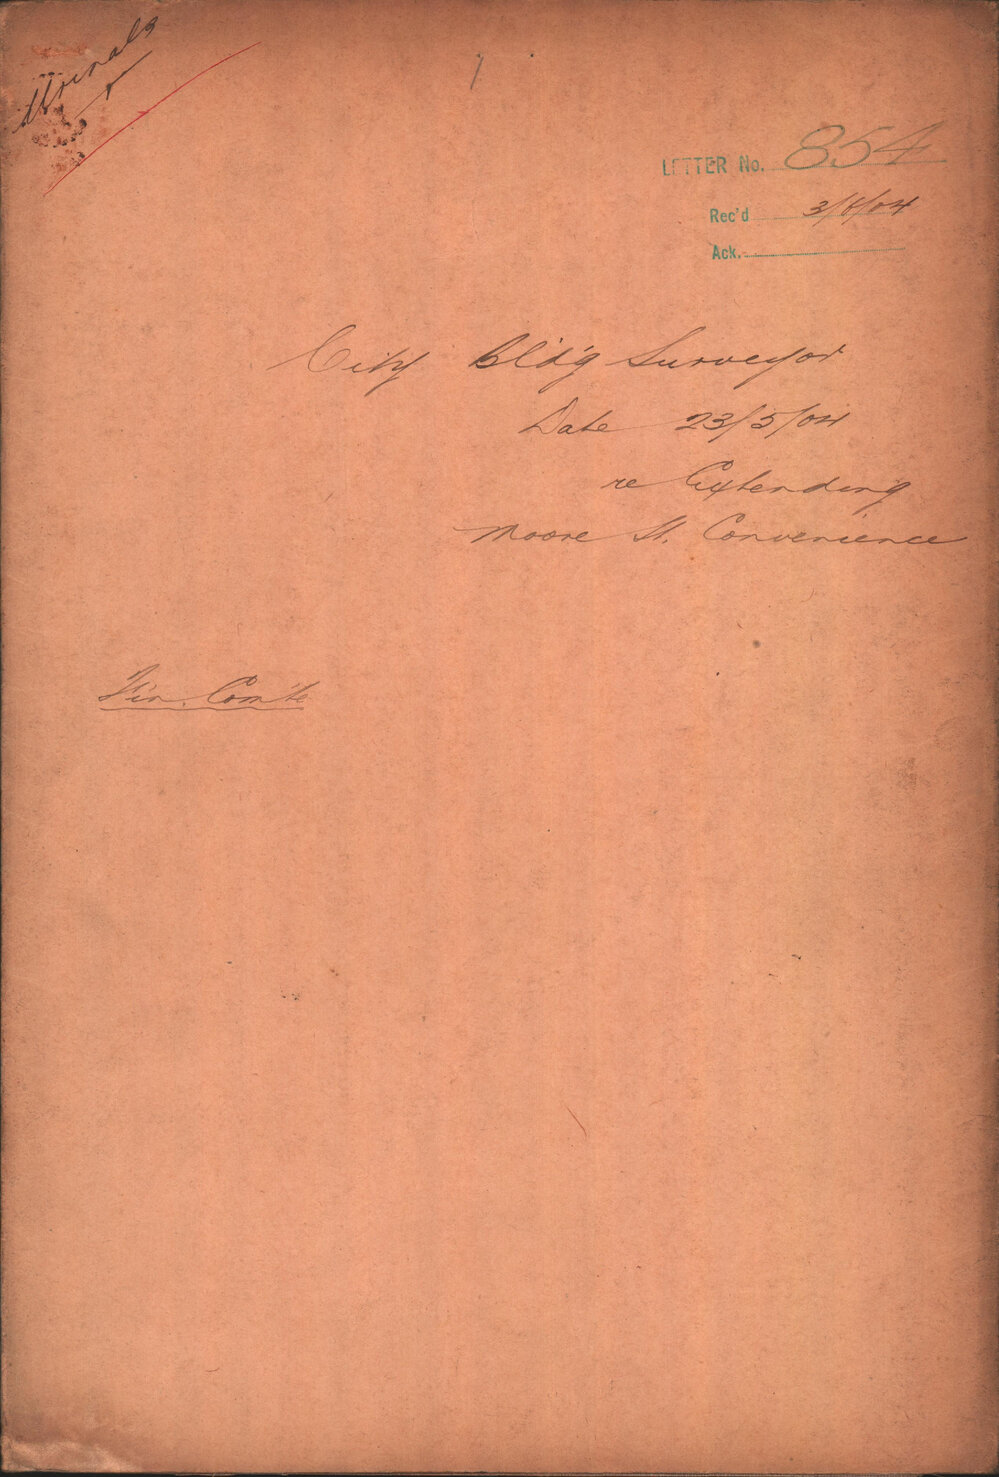 Urinals
LETTER No. 854
Rec'd 3/8/04
Ack.
City Bld'g Surveyor
Date 23/5/04
re Extending
Moore St. Convenience
Fin. Com'te